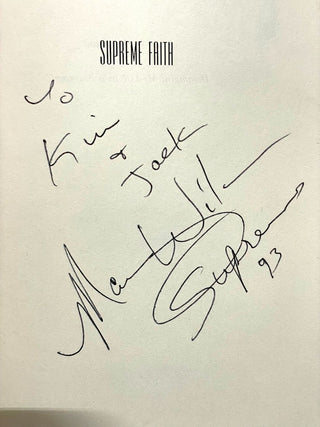 SUPREME FAITH
To
Kim
& Jack
Mary Wilson
Supreme
93